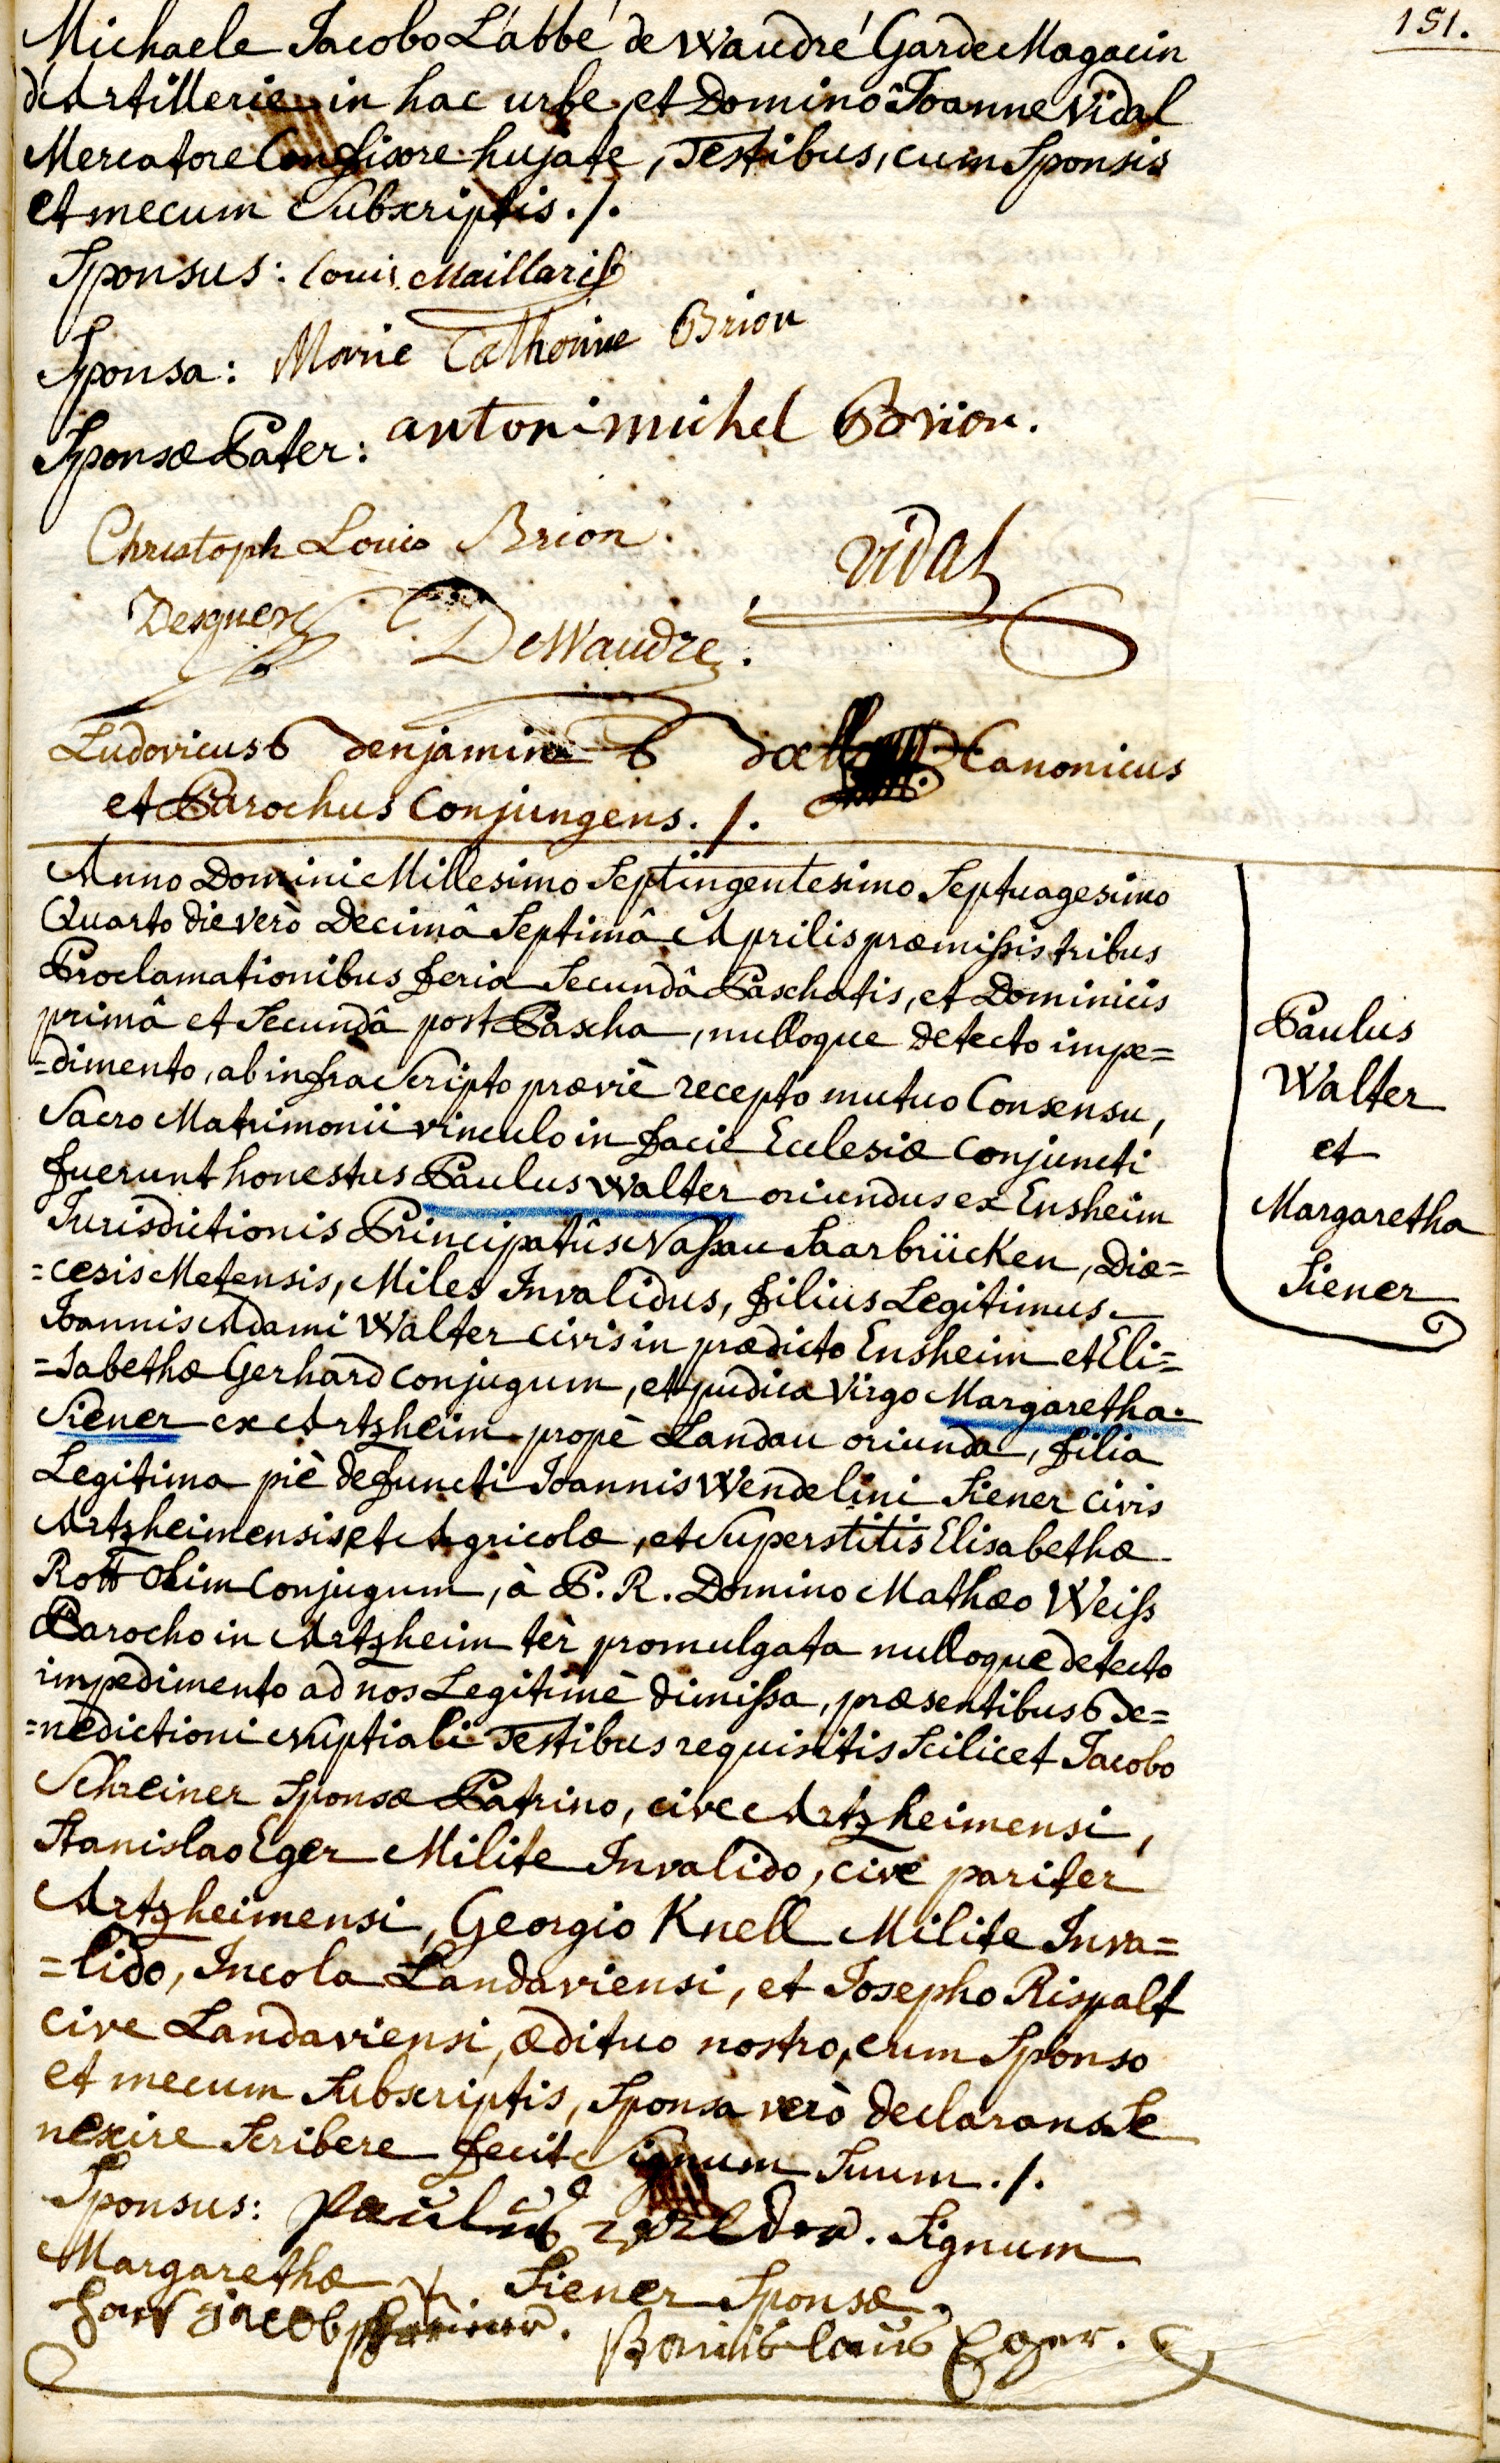 151.
Michaele Jacobo L'abbé de Waudré Garde Magacin
d'Artillerie in hac urbe, et Domino Joanne Vidal
Mercatore hujate, Testibus, cum Sponsis
et mecum Subscriptis ./.
Sponsus: Louis Maillard
Sponsa: Marie Catherine Brion
Sponsæ Pater: antoni michel Brion.
Christoph Louis Brion.
Vidal
DeWaudré.
Ludovicus Benjamin Canonicus
et Parochus Conjungens ./.
Anno Domini Millesimo Septingentesimo Septuagesimo
Quarto die verò Decimâ Septimâ Aprilis præmissis tribus
Proclamationibus feria Secundâ Paschatis, et Dominicis
primâ et Secundâ post Pascha, nulloque detecto impe=
=dimento, ab infra Scripto præviè recepto mutuo Consensu,
Sacro Matrimonii vinculo in facie Ecclesiæ Conjuncti
fuerunt honestus Paulus Walter oriundus ex Ensheim
Jurisdictionis Principatûs Nassau Saarbrücken, Diæ=
=cesis Metensis, Miles Invalidus, filius Legitimus
Joannis Adami Walter civis in prædicto Ensheim et Eli=
=sabethæ Gerhard conjugum, et pudica Virgo Margaretha
Siener ex Artzheim propè Landau oriunda, filia
Legitima piè defuncti Joannis Wendelini Siener Civis
Artzheimensis, et Agricolæ, et Superstitis Elisabethæ
Rott olim Conjugum, à P. R. Domino Mathæo Weiss
Parocho in Artzheim tèr promulgata nulloque detecto
impedimento ad nos Legitimè dimissa, præsentibus Be=
=nedictioni Nuptiali Testibus requisitis Scilicet Jacobo
Schreiner Sponsæ Patrino, cive Artzheimensi,
Stanislao Eger Milite Invalido, cive pariter
Artzheimensi, Georgio Knell Milite Inva=
=lido, Incola Landaviensi, et Josepho Rispalt
cive Landaviensi, ædituo nostro, cum Sponso
et mecum Subscriptis, Sponsa verò declarans Se
nescire Scribere fecit Signum Suum ./.
Sponsus: Paulus Walter. Signum
Margarethæ + Siener Sponsæ.
jacob Schreiner. Stanislaus Eger.
Paulus
Walter
et
Margaretha
Siener